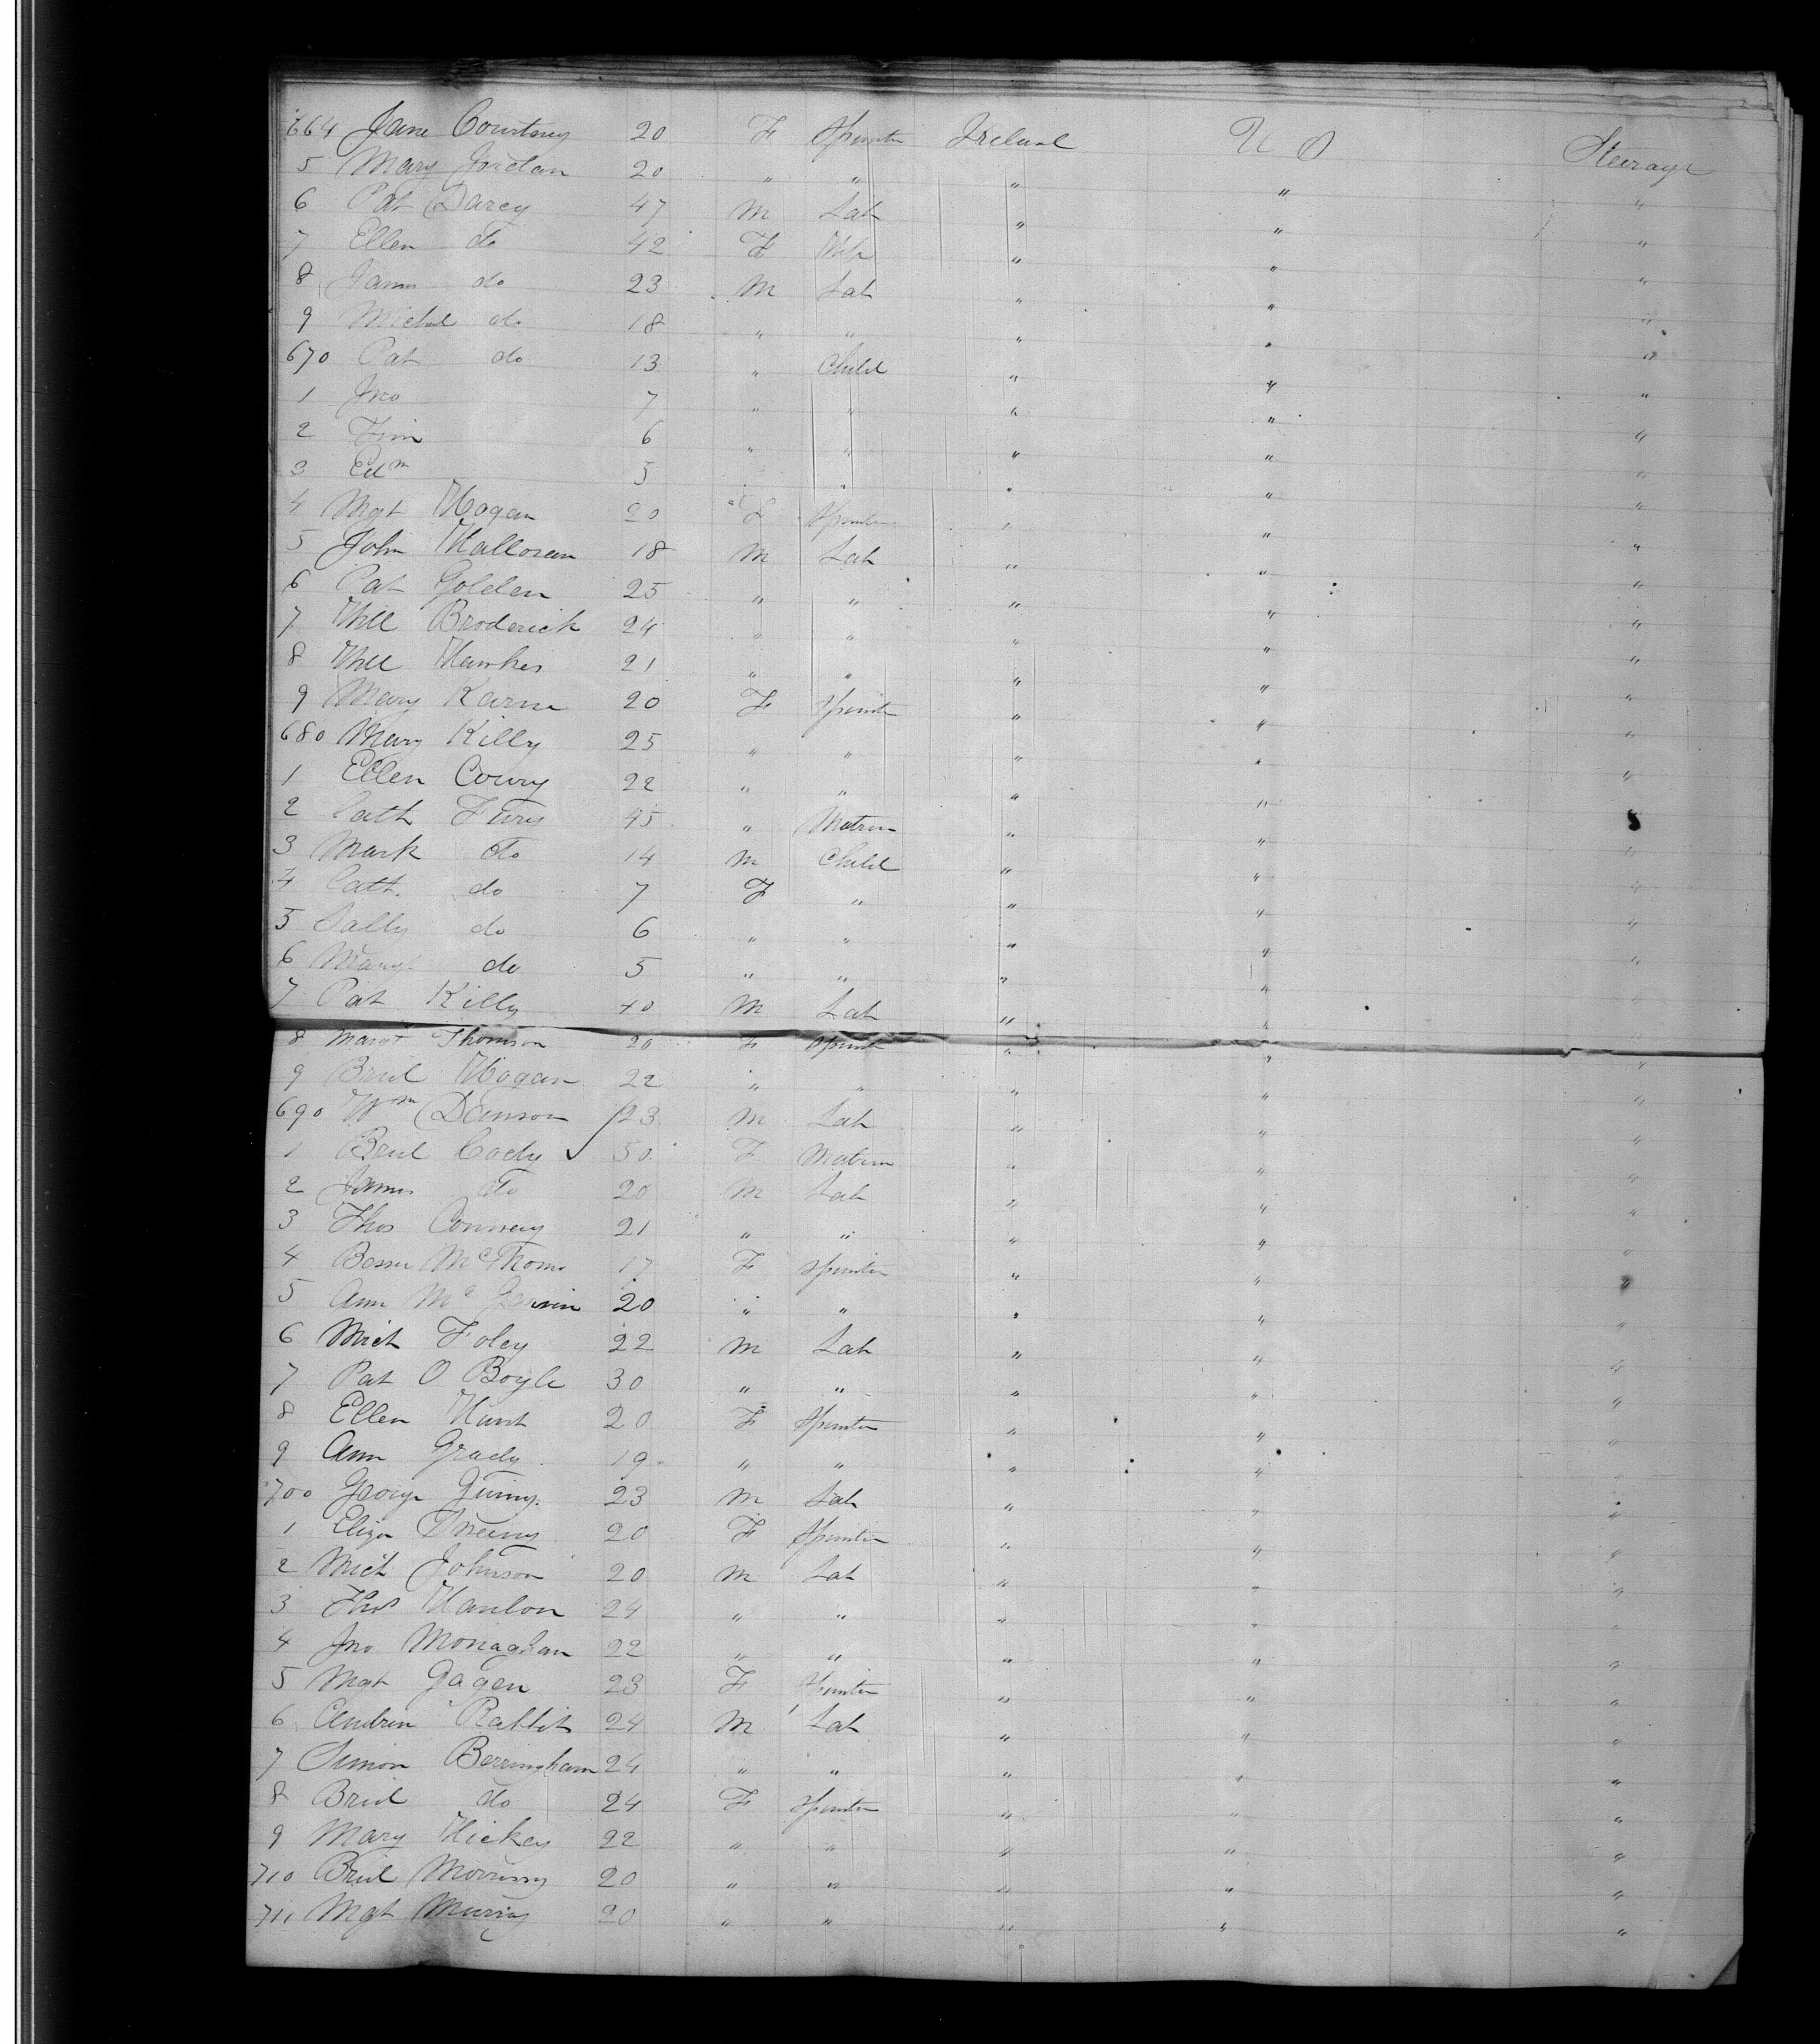 664 Jane Courtney 20 F Spinster Ireland U S Steerage
5 Mary Jordan 20 " " " " "
6 Pat Darcy 47 M Lab " " "
7 Ellen do 42 F Wife " " "
8 James do 23 M Lab " " "
9 Michal do 18 " " " " "
670 Pat do 13 " Child " " "
1 Jno 7 " " " " "
2 Tim 6 " " " " "
3 Edm 5 " " " " "
4 Mgt Hogan 20 F Spinster " " "
5 John Halloran 18 M Lab " " "
6 Pat Golden 25 " " " " "
7 Will Broderick 24 " " " " "
8 Will Hawkes 21 " " " " "
9 Mary Karne 20 F Spinster " " "
680 Mary Killy 25 " " " " "
1 Ellen Coury 22 " " " " "
2 Cath Fury 45 " Matron " " "
3 Mark do 14 M Child " " "
4 Cath. do 7 F " " " "
5 Sally do 6 " " " " "
6 Margt do 5 " " " " "
7 Pat Killy 40 M Lab " " "
8 Margt Thomson 20 F Spinst " " "
9 Brid Hogan 22 " " " " "
690 Wm Danson 23 M Lab " " "
1 Brid Cody 50 F Matron " " "
2 James do 20 M Lab " " "
3 Thos Connery 21 " " " " "
4 Bessie Mc 17 F Spinster " " "
5 Ann Mc 20 " " " " "
6 Mich Foley 22 M Lab " " "
7 Pat O Boyle 30 " " " " "
8 Ellen Hunt 20 F Spinster " " "
9 Ann Grady 19 " " " " "
700 George 23 M Lab " " "
1 Eliza 20 F Spinster " " "
2 Mich Johnson 20 M Lab " " "
3 Thos Hanlon 24 " " " " "
4 Jno Monaghan 22 " " " " "
5 Mgt Gagen 23 F Spinster " " "
6 Andrew Rabbit 24 M Lab " " "
7 Simon Berringham 24 " " " " "
8 Brid do 24 F Spinster " " "
9 Mary Hickey 22 " " " " "
710 Brid Morrissy 20 " " " " "
711 Mgt Murray 20 " " " " "